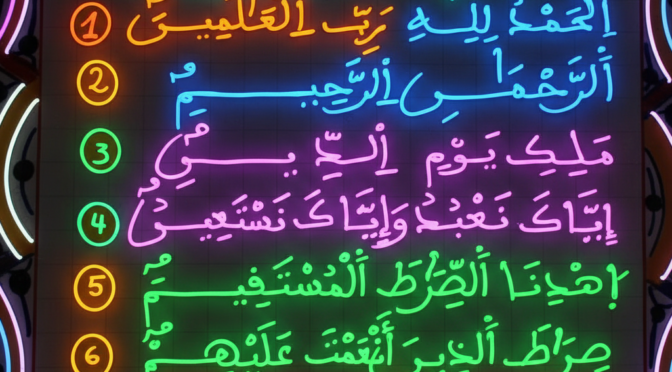 اَلْحَمْدُ لِلهِ رَبِّ اِلْعَالَمِينَ 1
اَلرَّحْمَٰنِ اِلرَّحِيمِ 2
مَلِكِ يَوْمِ اِلدِّينِ 3
إِيَّاكَ نَعْبُدُ وَإِيَّاكَ نَسْتَعِينُ 4
اِهْدِنَا اَلصِّرَٰطَ اَلْمُسْتَقِيمَ 5
صِرَٰطَ اَلذِينَ أَنْعَمْتَ عَلَيْهِمْ 6